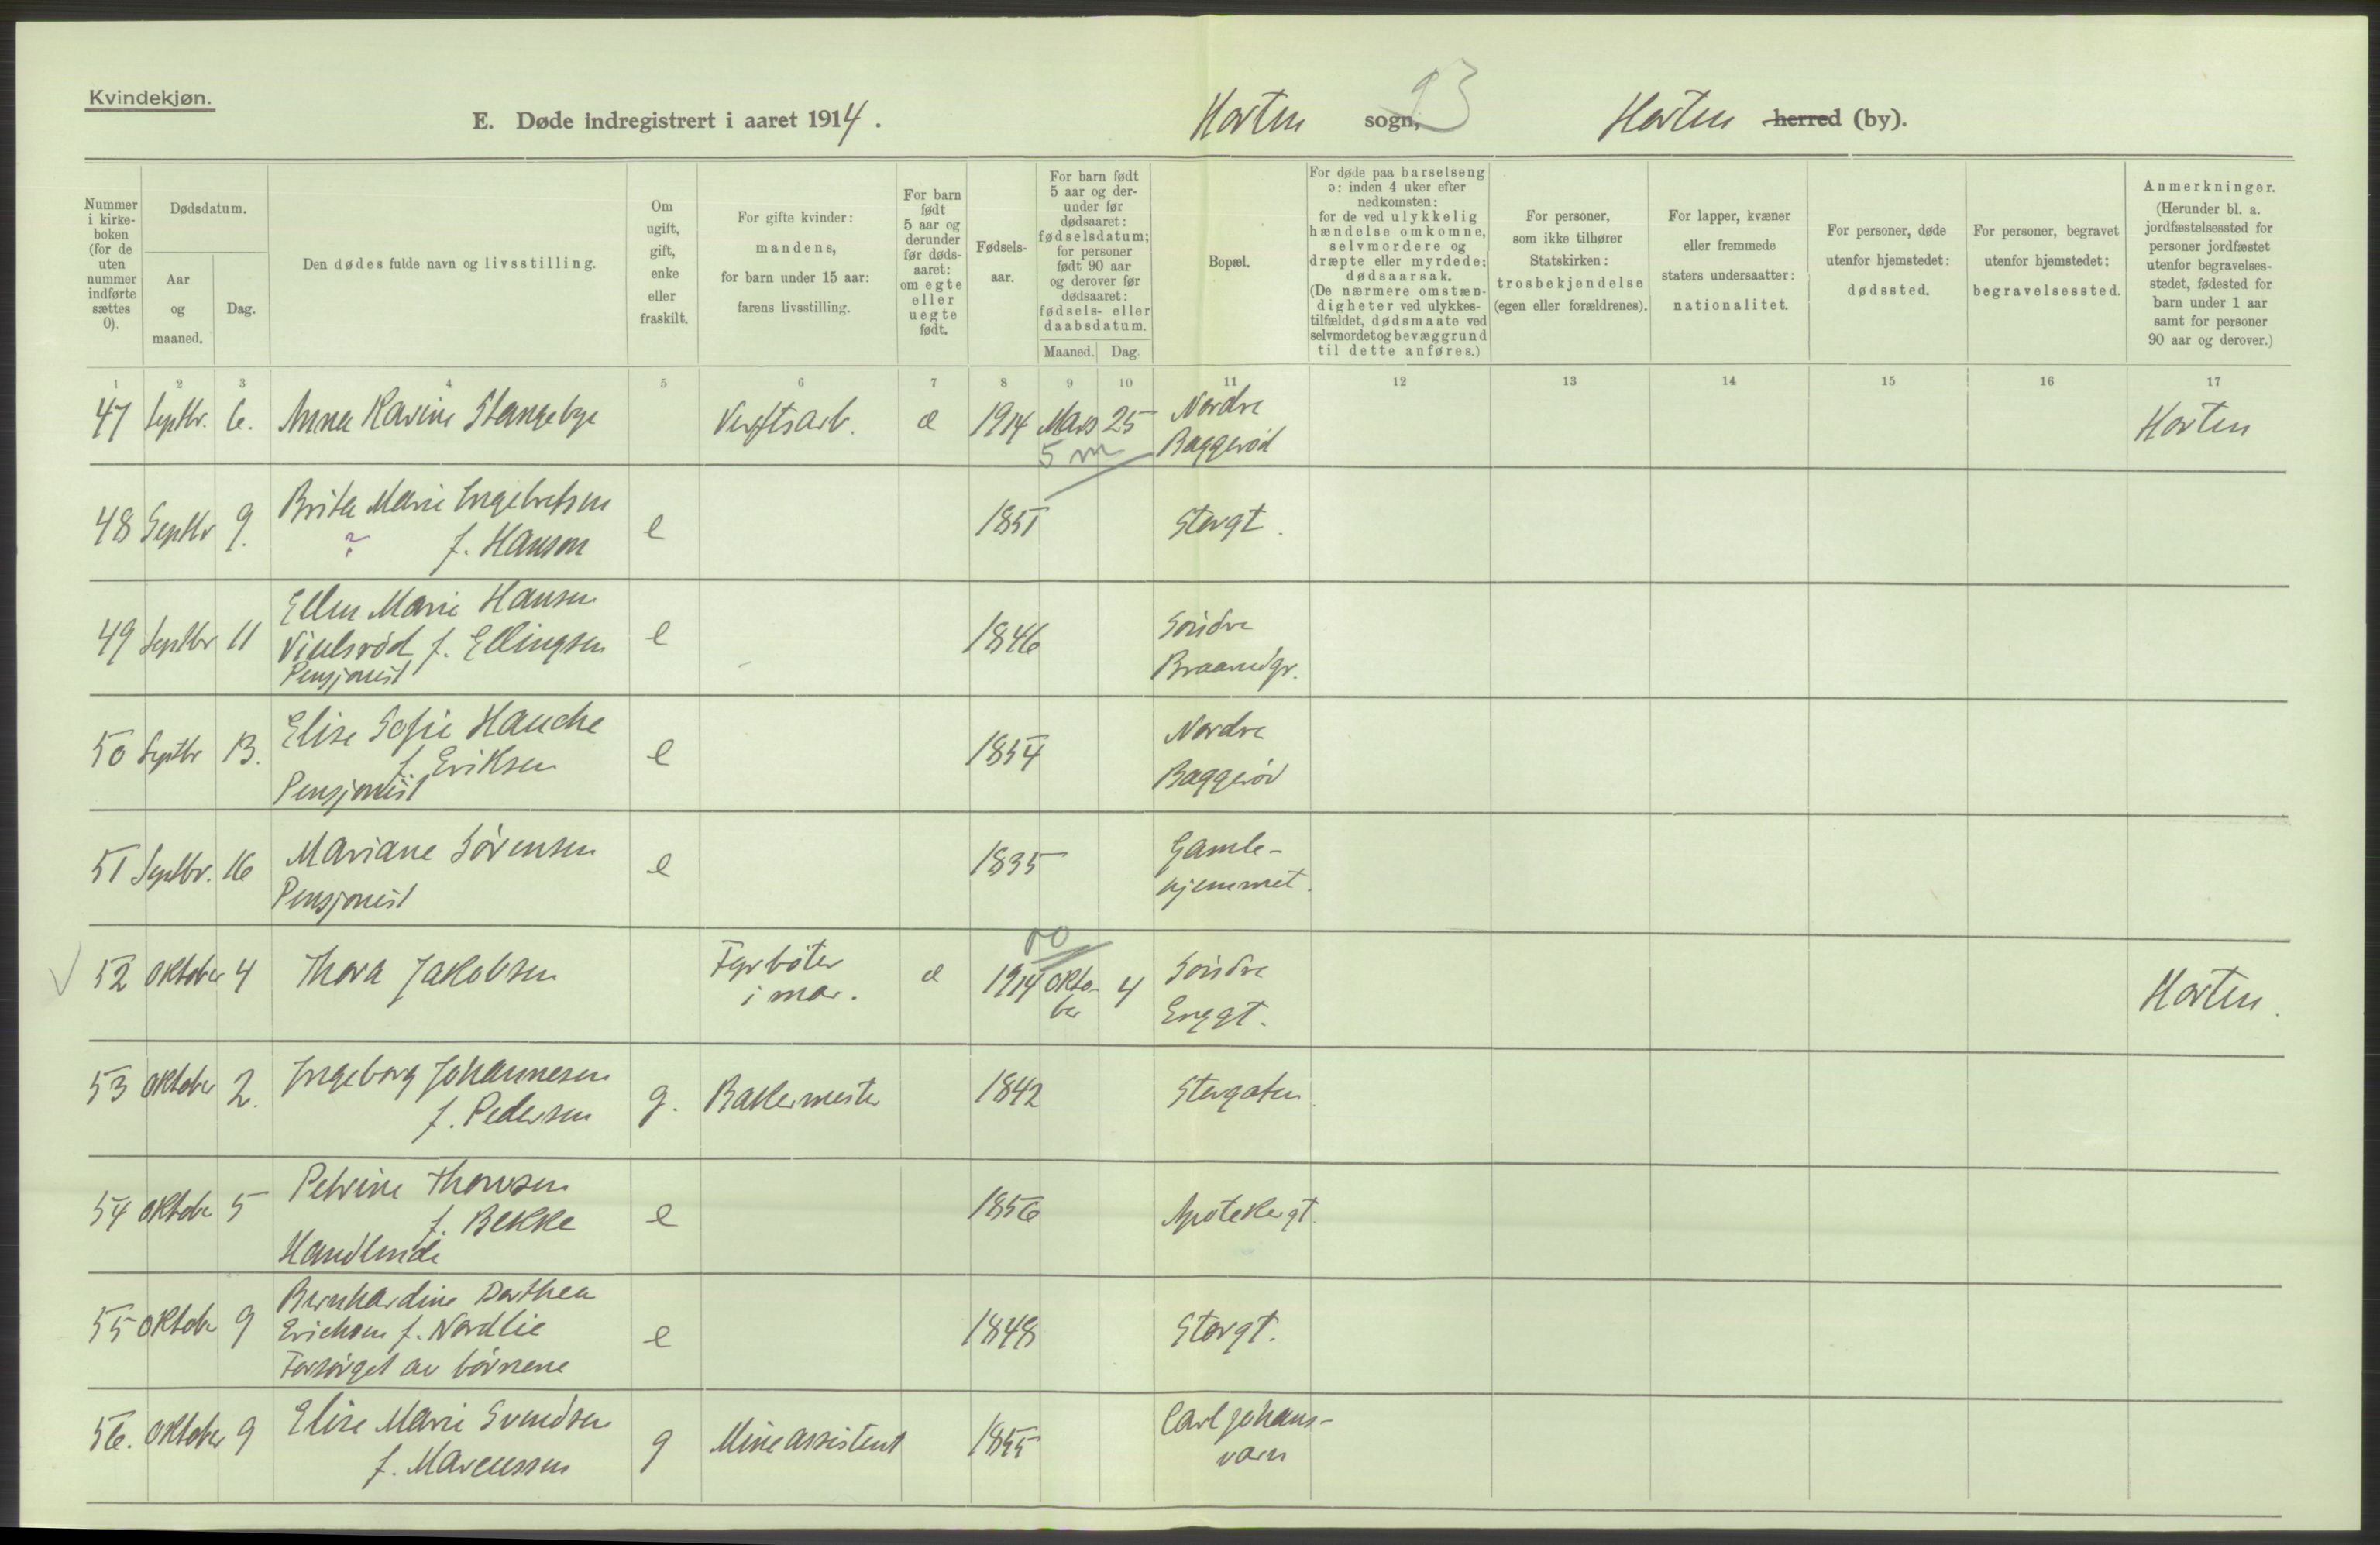 Kvindekjøn.
E. Døde indregistrert i aaret 1914.
Horten sogn, 93 Horten herred (by).
Nummer i kirke-boken (for de uten nummer indførte sættes 0).
Dødsdatum.
Aar og maaned.
Dag.
Den dødes fulde navn og livsstilling.
Om ugift, gift, enke eller fraskilt.
For gifte kvinder: mandens, for barn under 15 aar: farens livsstilling.
For barn født 5 aar og derunder før døds-aaret: om egte eller uegte født.
Fødsels-aar.
For barn født 5 aar og der-under før dødsaaret: fødselsdatum; for personer født 90 aar og derover før dødsaaret: fødsels- eller daabsdatum.
Maaned. Dag.
Bopæl.
For døde paa barselseng ɔ: inden 4 uker efter nedkomsten: for de ved ulykkelig hændelse omkomne, selvmordere og dræpte eller myrdede: dødsaarsak. (De nærmere omstæn-digheter ved ulykkes-tilfældet, dødsmaate ved selvmordet og bevæggrund til dette anføres.)
For personer, som ikke tilhører Statskirken: trosbekjendelse (egen eller forældrenes).
For lapper, kvæner eller fremmede staters undersaatter: nationalitet.
For personer, døde utenfor hjemstedet: dødssted.
For personer, begravet utenfor hjemstedet: begravelsessted.
Anmerkninger. (Herunder bl. a. jordfæstelsessted for personer jordfæstet utenfor begravelses-stedet, fødested for barn under 1 aar samt for personer 90 aar og derover.)
1 2 3 4 5 6 7 8 9 10 11 12 13 14 15 16 17
47 Septbr. 6. Anna Karine Stangebye Verftsarb. e 1914 Mars 25 Nordre Horten
5 m Baggerød
48 Septbr 9. Brita Marie Ingebretsen e 1851 Storgt.
? f. Hanson
49 Septbr 11 Ellen Marie Hansen e 1846 Söndre
f. Ellingsen Braarudgr.
Pensjonist
50 Septbr 13. Elise Sofie Hauche e 1854 Nordre
f. Eriksen Baggerød
Pensjonist
51 Septbr. 16 Mariane Sørensen e 1835 Gamle-
Pensjonist hjemmet.
52 Oktober 4 Thora Jakobsen Fyrbøter e 1914 Okto- 4 Söndre Horten.
i mar. ber Enggt.
53 Oktober 2. Ingeborg Johannesen g. Bakermester 1842 Storgaten
f. Pedersen
54 Oktober 5 Petrine Thorvsen e 1856 Apotekergt.
f. Bekke
Handlende
55 Oktober 9 Bernhardine Dorthea e 1848 Storgt.
Erichsen f. Nordlie
Forsørget av börnene
56. Oktober 9 Elise Marie Svendsen g Mineassistent 1855 Carl Johans-
f. Marcussen værn